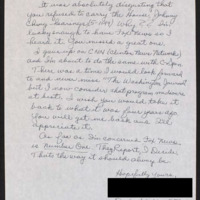 It was absolutely disgusting that
you refused to carry the Honor, Johnny
Chung hearings
lucky enough to have Fox News so I
heard it. You missed a great one.
I gave up on CNN (Clinton News Network)
and I'm about to do the same with C-Span.
There was a time I would look forward
to and never miss "The Washington Journal"
but I now consider that program mediocre
at best. I wish you would take it
back to what it was four years ago.
You will get me back and I'll
appreciate it.
As far as I'm concerned Fox News
is Number One. They Report, I Decide.
That's the way it should always be.
Hopefully Yours,